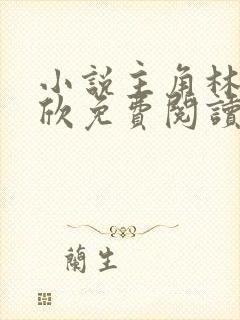 小說主角林
欣免費閱讀
蘭生